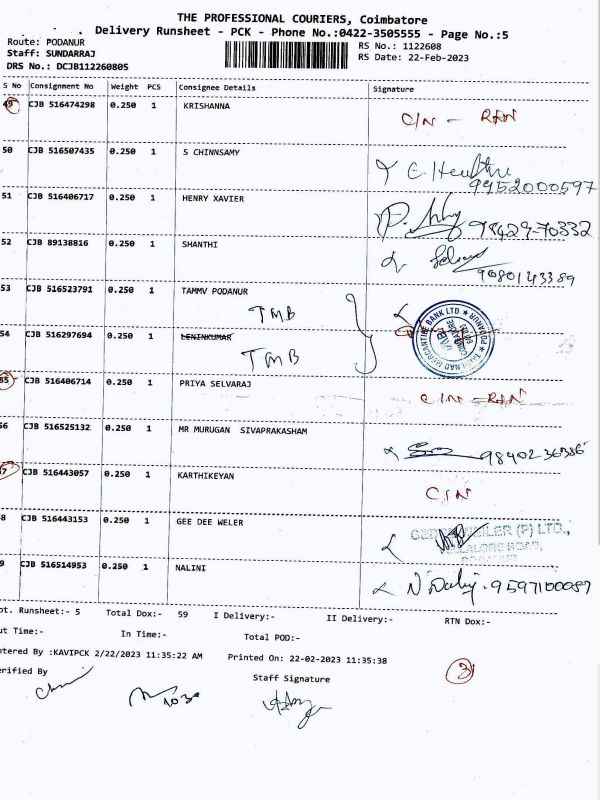 THE PROFESSIONAL COURIERS, Coimbatore
Delivery Runsheet - PCK - Phone No.:0422-3505555 - Page No.:5
Route: PODANUR
Staff: SUNDARRAJ
DRS No.: DCJB112260805
RS No.: 1122608
RS Date: 22-Feb-2023
S No Consignment No Weight PCS Consignee Details Signature
49 CJB 516474298 0.250 1 KRISHANNA C/N - RTN
50 CJB 516507435 0.250 1 S CHINNSAMY
9952000597
51 CJB 516406717 0.250 1 HENRY XAVIER
98429-70332
52 CJB 89138816 0.250 1 SHANTHI
9080143389
53 CJB 516523791 0.250 1 TAMMV PODANUR
TMB
54 CJB 516297694 0.250 1 LENINKUMAR
TMB
55 CJB 516406714 0.250 1 PRIYA SELVARAJ C/N - RTN
56 CJB 516525132 0.250 1 MR MURUGAN SIVAPRAKASHAM
98402 36386
7 CJB 516443057 0.250 1 KARTHIKEYAN C/N
8 CJB 516443153 0.250 1 GEE DEE WELER
(P) LTD.,
9 CJB 516514953 0.250 1 NALINI
9597100087
pt. Runsheet:- 5 Total Dox:- 59 I Delivery:- II Delivery:- RTN Dox:-
ut Time:- In Time:- Total POD:-
ntered By :KAVIPCK 2/22/2023 11:35:22 AM Printed On: 22-02-2023 11:35:38
erified By Staff Signature
3
1030